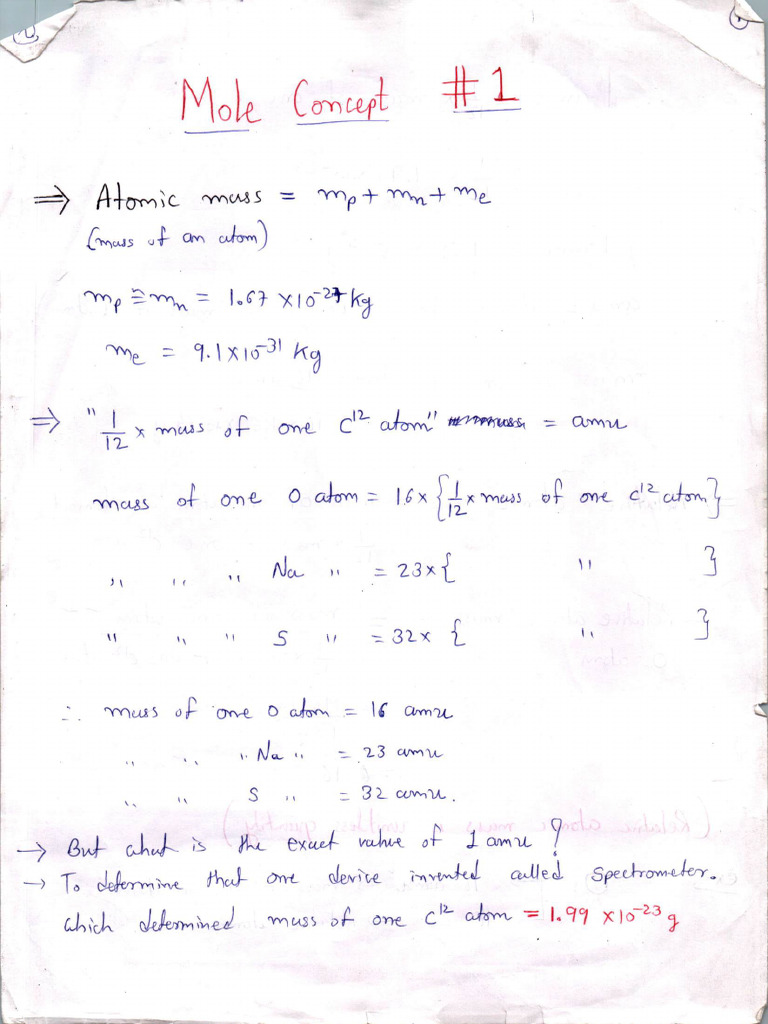 Mole Concept #1
⇒ Atomic mass = mp + mn + me
(mass of an atom)
mp ≅ mn = 1.67 × 10⁻²⁷ Kg
me = 9.1 × 10⁻³¹ Kg
⇒ "1/12 × mass of one C¹² atom" = amu
mass of one O atom = 16 × {1/12 × mass of one C¹² atom}
" " " Na " = 23 × { " }
" " " S " = 32 × { " }
∴ mass of one O atom = 16 amu
" " " Na " = 23 amu
" " S " = 32 amu.
→ But what is the exact value of 1 amu ?
→ To determine that one device invented called Spectrometer.
which determined mass of one C¹² atom = 1.99 × 10⁻²³ g